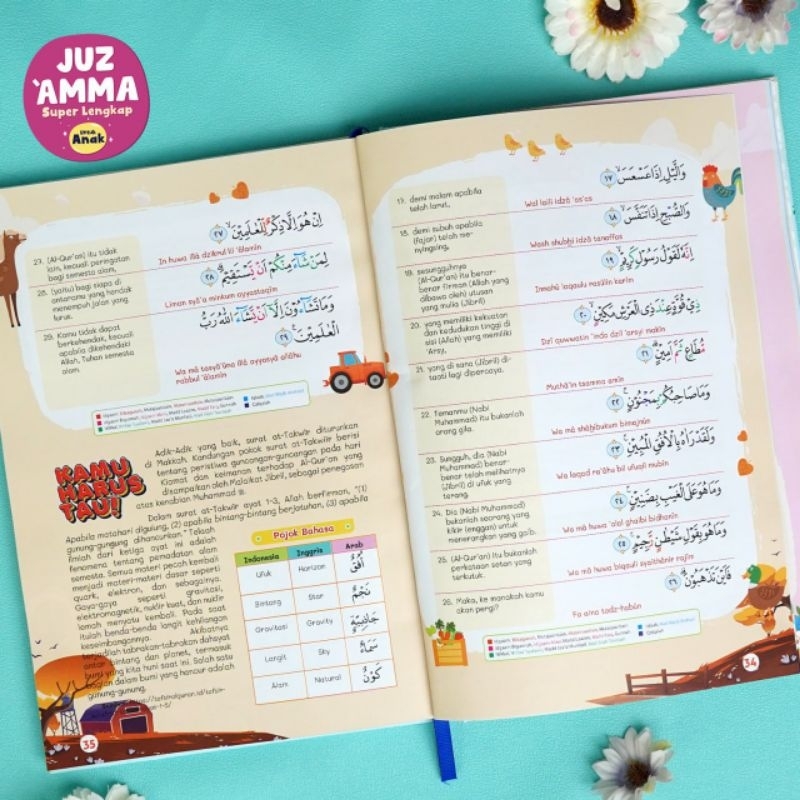 JUZ
'AMMA
Super Lengkap
Untuk
Anak
وَالَّيْلِ اِذَا عَسْعَسَۙ ١٧
17. demi malam apabila
telah larut,
Wal laili idzâ 'as'as
وَالصُّبْحِ اِذَا تَنَفَّسَۙ ١٨
18. demi subuh apabila
(fajar) telah me-
nyingsing,
Wash shubhi idzâ tanaffas
اِنَّهٗ لَقَوْلُ رَسُوْلٍ كَرِيْمٍۙ ١٩
19. sesungguhnya
(Al-Qur'an) itu benar-
benar firman (Allah yang
dibawa oleh) utusan
yang mulia (Jibril)
Innahû laqaulu rasûlin karîm
ذِيْ قُوَّةٍ عِنْدَ ذِى الْعَرْشِ مَكِيْنٍۙ ٢٠
20. yang memiliki kekuatan
dan kedudukan tinggi di
sisi (Allah) yang memiliki
'Arsy,
Dzî quwwatin 'inda dzîl 'arsyi makîn
مُّطَاعٍ ثَمَّ اَمِيْنٍۗ ٢١
21. yang di sana (Jibril) di-
taati lagi dipercaya.
Muthâ'in tsamma amîn
وَمَا صَاحِبُكُمْ بِمَجْنُوْنٍۚ ٢٢
22. Temanmu (Nabi
Muhammad) itu bukanlah
orang gila.
Wa mâ shâhibukum bimajnûn
وَلَقَدْ رَاٰهُ بِالْاُفُقِ الْمُبِيْنِۚ ٢٣
23. Sungguh, dia (Nabi
Muhammad) benar-
benar telah melihatnya
(Jibril) di ufuk yang
terang.
Wa laqad ra'âhu bil ufuqil mubîn
وَمَا هُوَ عَلَى الْغَيْبِ بِضَنِيْنٍۚ ٢٤
24. Dia (Nabi Muhammad)
bukanlah seorang yang
kikir (enggan) untuk
menerangkan yang gaib.
Wa mâ huwa 'alal ghaibi bidhanîn
وَمَا هُوَ بِقَوْلِ شَيْطٰنٍ رَّجِيْمٍۚ ٢٥
25. (Al-Qur'an) itu bukanlah
perkataan setan yang
terkutuk.
Wa mâ huwa biqauli syaithânir rajîm
فَاَيْنَ تَذْهَبُوْنَۗ ٢٦
26. Maka, ke manakah kamu
akan pergi?
Fa aina tadz-habûn
34
اِنْ هُوَ اِلَّا ذِكْرٌ لِّلْعٰلَمِيْنَۙ ٢٧
27. (Al-Qur'an) itu tidak
lain, kecuali peringatan
bagi semesta alam,
In huwa illâ dzikrul lil 'âlamîn
لِمَنْ شَاۤءَ مِنْكُمْ اَنْ يَّسْتَقِيْمَۗ ٢٨
28. (yaitu) bagi siapa di
antaramu yang hendak
menempuh jalan yang
lurus.
Liman syâ'a minkum ayyastaqîm
وَمَا تَشَاۤءُوْنَ اِلَّآ اَنْ يَّشَاۤءَ اللّٰهُ رَبُّ
الْعٰلَمِيْنَ ٢٩
29. Kamu tidak dapat
berkehendak, kecuali
apabila dikehendaki
Allah, Tuhan semesta
alam.
Wa mâ tasyâ'ûna illâ ayyasyâ allâhu
rabbul 'âlamîn
KAMU
HARUS
TAU!
Adik-Adik yang baik, surat at-Takwîr diturunkan
di Makkah. Kandungan pokok surat at-Takwîr berisi
tentang peristiwa guncangan-guncangan pada hari
Kiamat dan keimanan terhadap Al-Qur'an yang
disampaikan oleh Malaikat Jibril, sebagai penegasan
atas kenabian Muhammad ﷺ.
Dalam surat at-Takwîr ayat 1-3, Allah berfirman, "(1)
Apabila matahari digulung, (2) apabila bintang-bintang berjatuhan, (3) apabila
gunung-gunung dihancurkan." Telaah
ilmiah dari ketiga ayat ini adalah
fenomena tentang pemadatan alam
semesta. Semua materi pecah kembali
menjadi materi-materi dasar seperti
quark, elektron, dan sebagainya.
Gaya-gaya seperti gravitasi,
elektromagnetik, nuklir kuat, dan nuklir
lemah menyatu kembali. Pada saat
itulah benda-benda langit kehilangan
keseimbangannya. Akibatnya,
terjadilah tabrakan-tabrakan dahsyat
antar bintang dan planet, termasuk
bumi yang kita huni saat ini. Salah satu
bagian dalam bumi yang hancur adalah
gunung-gunung.
Pojok Bahasa
Indonesia Inggris Arab
Ufuk Horizon أُفُقٌ
Bintang Star نَجْمٌ
Gravitasi Gravity جَاذِبِيَّةٌ
Langit Sky سَمَاءٌ
Alam Natural كَوْنٌ
35